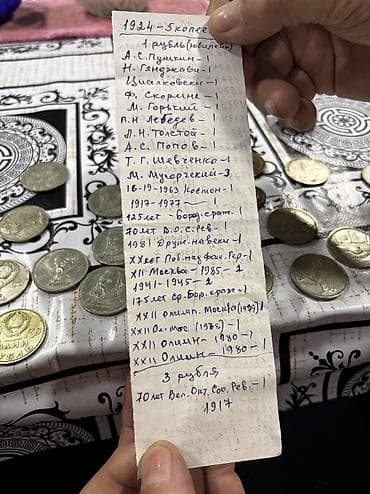 1924 - 5 копее
1 рубль (юбилейн)
А.С. Пушкин - 1
Н. Гянджави - 1
Циалковски - 1
Ф. Скорина - 1
М. Горький - 1
П.Н. Лебедев - 1
Л.Н. Толстой - 1
А.С. Попов - 1
Т.Г. Шевченко - 1
М. Мусоргский - 3
16-19-1963 Костон - 1
1917-1977 - 1
125 лет - Бород. сраж. - 1
70 лет В.О.С. Рев - 1
1981 Друж. навеки - 1
XX лет Поб. над фаш. Гер - 1
XII Москва - 1985 - 1
1941 - 1945 - 1
175 лет ср. Бор. краж - 1
XXII олимп. Москва (1979) 1
XXII Ол. Мос (1978) - 1
XXII олимп - 1980 - 1
XXII Олимп - 1980 - 1
3 рубля
70 лет Вел. Окт. Соц. Рев. - 1
1917